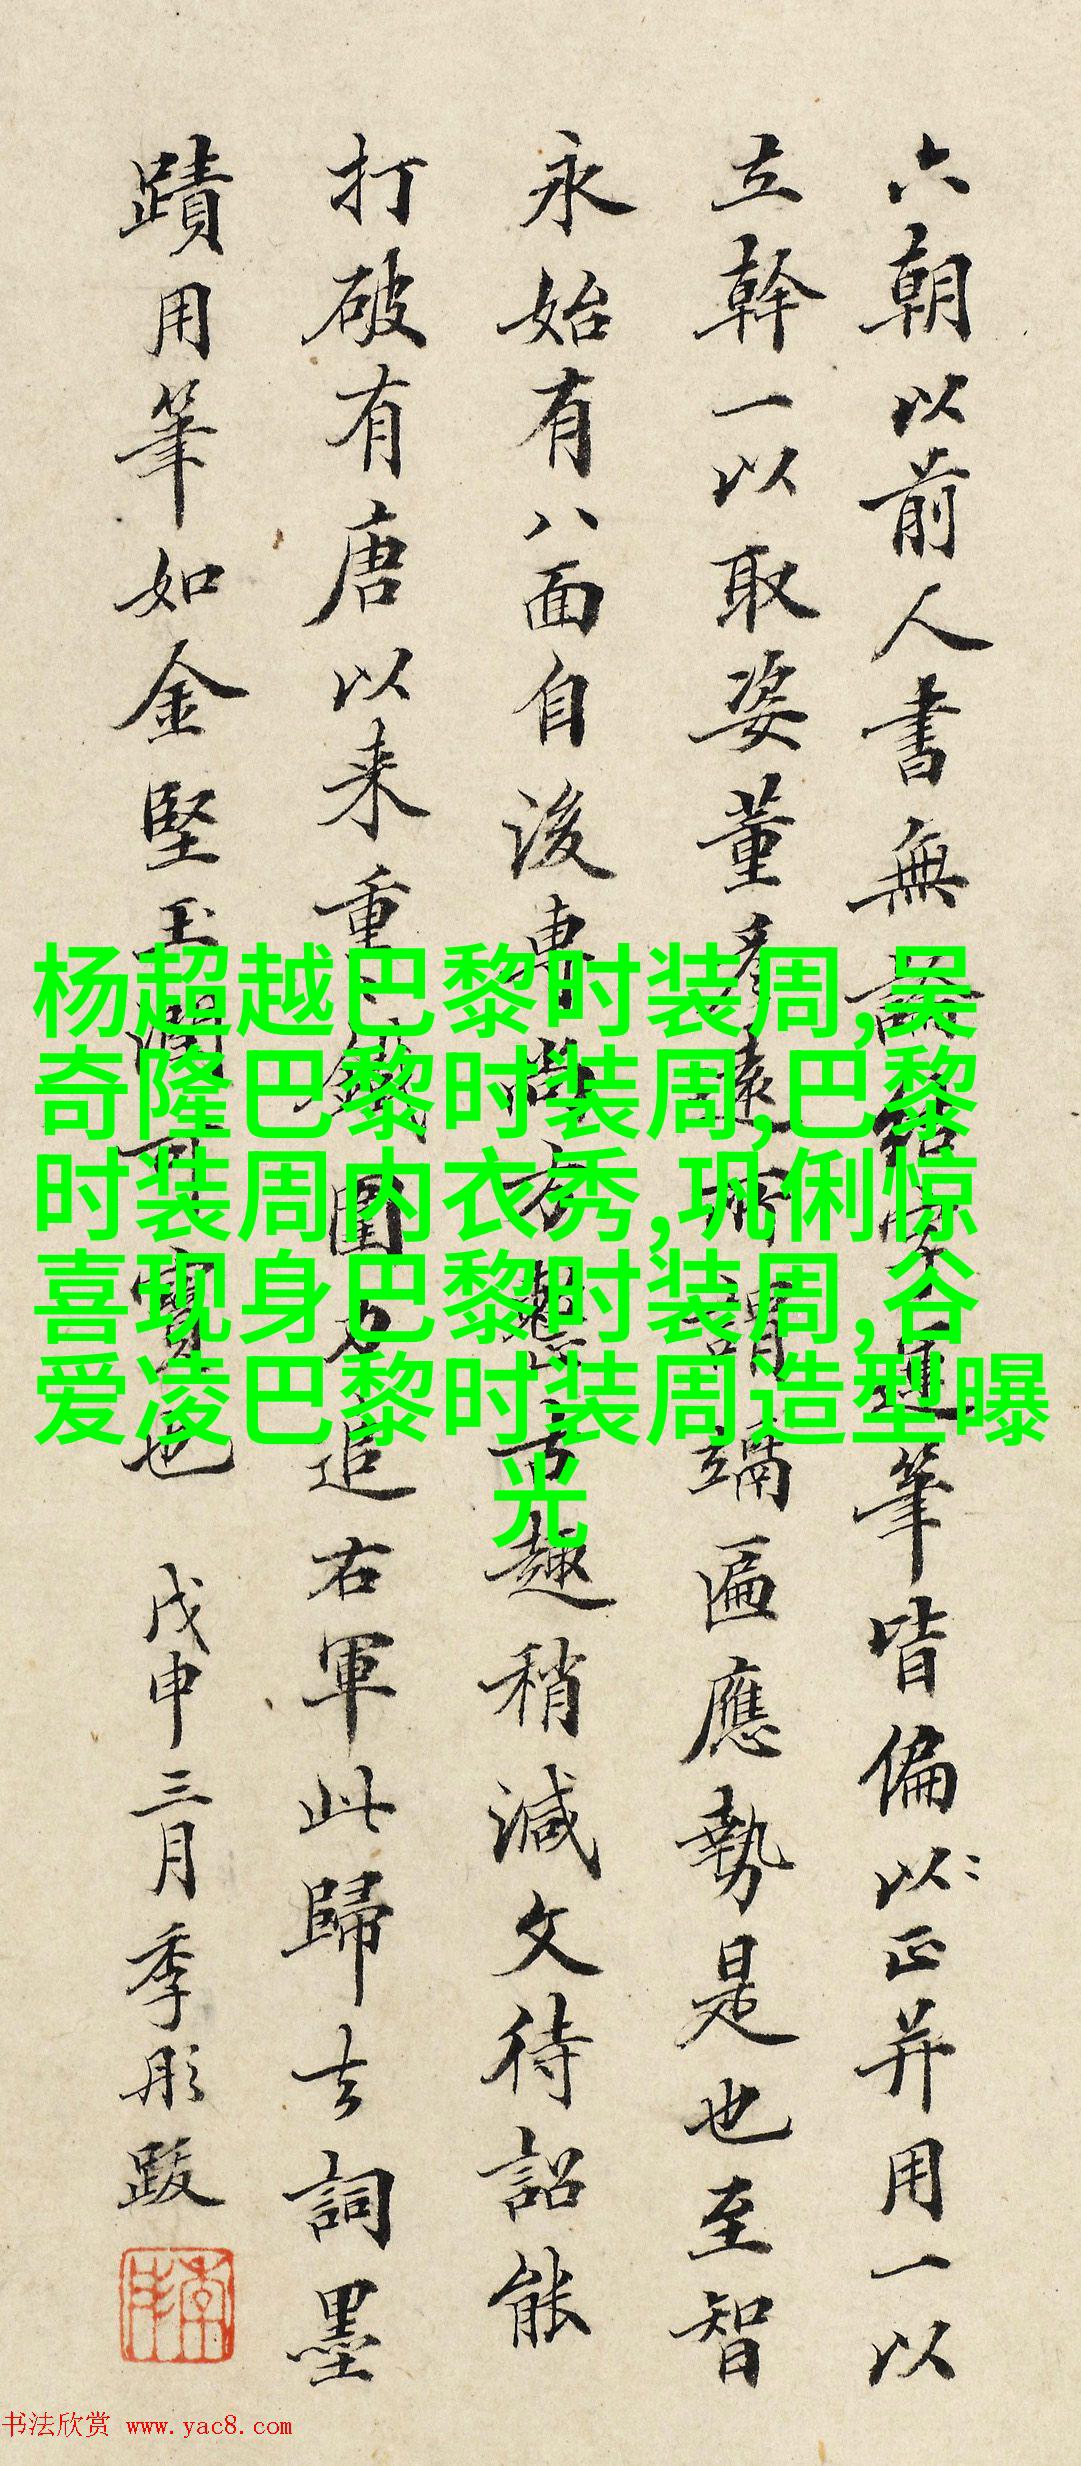 六朝以前人書無論結字運筆皆偏以正并用一以
立幹一以取姿董彥遠所謂竭匾應勢是也至智
永始有八面自後專尚方懸意趣稍減文待詔能
打破有唐以来重鐵圍力追右軍此歸去詞墨
蹟用筆如金堅玉潤可寶也 戊申三月季彤跋
杨超越巴黎时装周,吴
奇隆巴黎时装周,巴黎
时装周内衣秀,巩俐惊
喜现身巴黎时装周,谷
爱凌巴黎时装周造型曝
光
书法欣赏 www.yac8.com